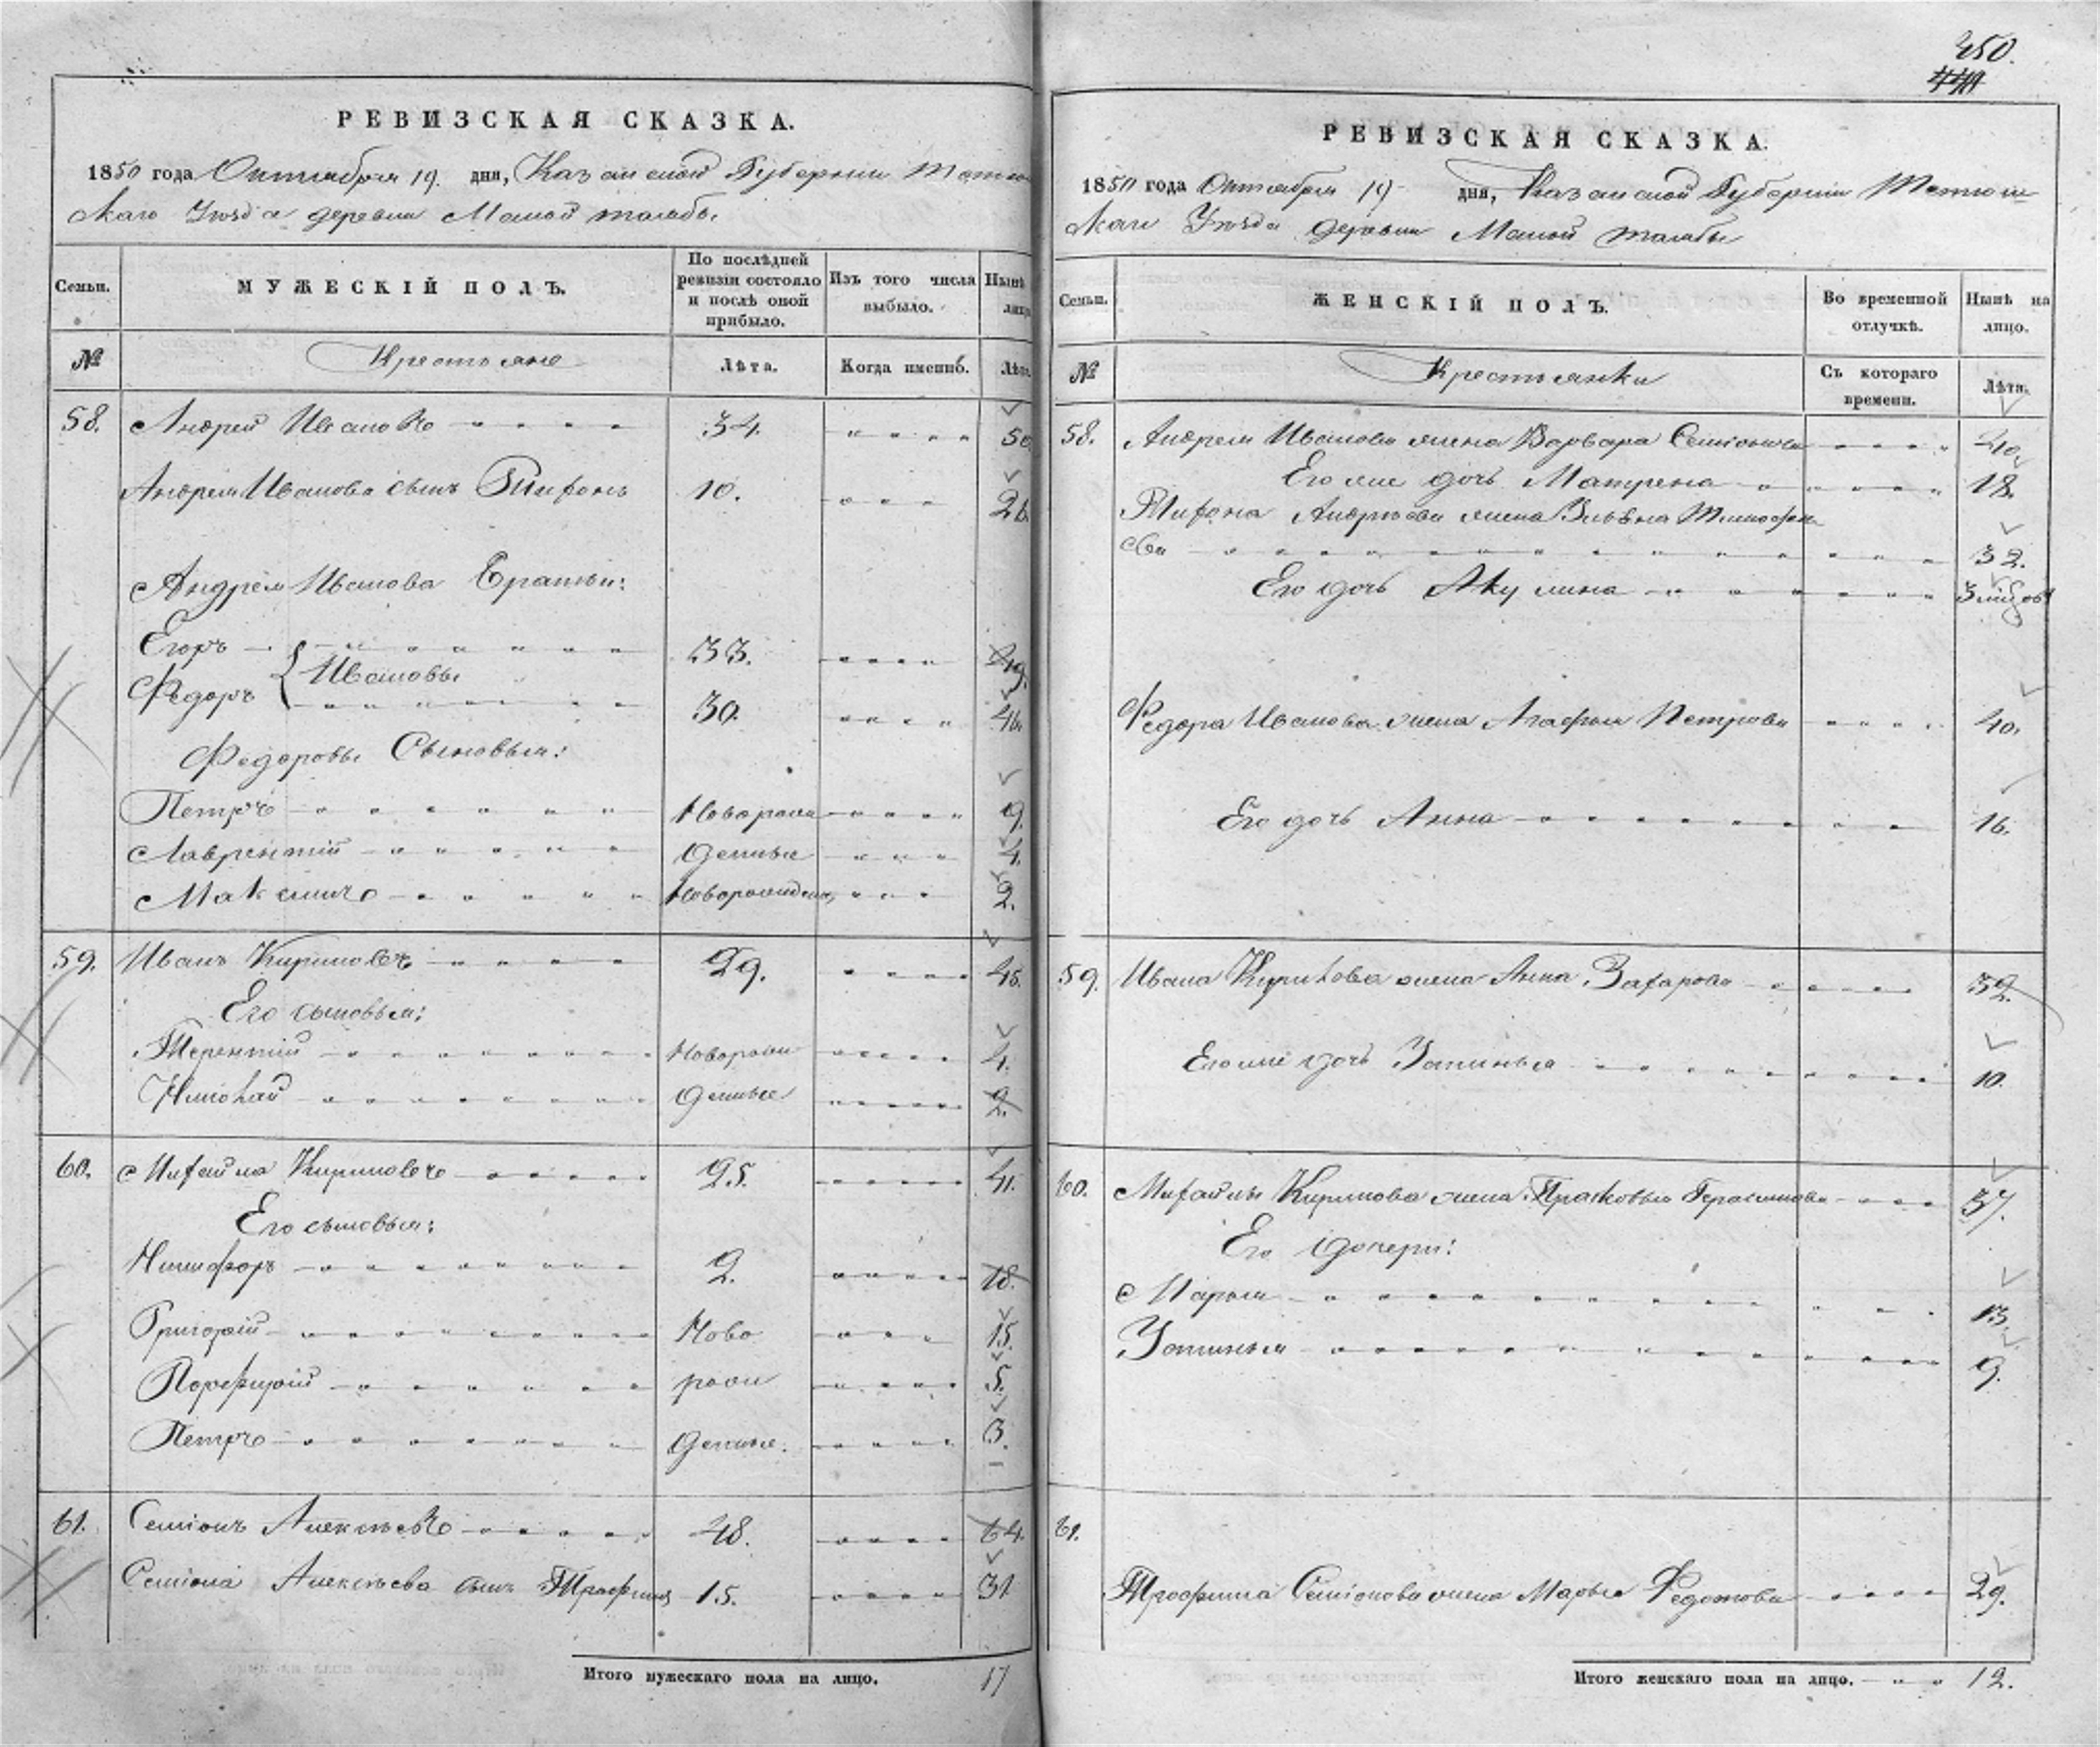 250.
РЕВИЗСКАЯ СКАЗКА.
1850 года Октября 19. дня, Казанской Губерніи Тетюш
скаго Уѣзда деревни Малой
Семьи.
МУЖЕСКІЙ ПОЛЪ.
По послѣдней ревизіи состояло и послѣ оной прибыло.
Изъ того числа выбыло.
Нынѣ лицо
№
Крестьяне
Лѣта.
Когда именно.
Лѣта.
58. Андрей Ивановъ 34. 50
Андрея Иванова сынъ Тифонъ 10. 26.
Андрея Иванова братья:
Егоръ 33. 49.
Ивановы
Федоръ 30. 46.
Федоровы Сыновья:
Петръ Новорож 9.
Лаврентій денные 4.
Максимъ Новорожденъ 2.
59. Иванъ Кириловъ 29. 45.
Его сыновья:
Терентій Новорож 4.
Николай денные 2.
60. Михайла Кириловъ 25. 41.
Его сыновья:
Никифоръ 2. 18.
Григорій Ново 15.
Порфирій рож 5.
Петръ денные. 3.
61. Семіонъ Алексѣевъ 48. 64.
Семіона Алексѣева сынъ Трофимъ 15. 31
Итого мужескаго пола на лицо. 17
РЕВИЗСКАЯ СКАЗКА.
1850 года Октября 19 дня, Казанской Губерніи Тетюш
скаго Уѣзда деревни Малой
Семьи.
ЖЕНСКІЙ ПОЛЪ.
Во временной отлучкѣ.
Нынѣ на лицо.
№
Крестьянки
Съ котораго времени.
Лѣта.
58. Андрея Иванова жена Варвара Семіонова 40.
Его же дочь Матрена 18.
Тифона Андрѣева жена Ульяна Тимофее
ва 32.
Его дочь Акулина 3 мѣсяцовъ
Федора Иванова жена Агафья Петрова 40.
Его дочь Анна 16.
59. Ивана Кирилова жена Анна Захарова 32.
Его же дочь Устинья 10.
60. Михайлы Кирилова жена Прасковья Герасимова 37.
Его дочери:
Марья 13.
Устинья 9.
61.
Трофима Семіонова жена Марья Федотова 29.
Итого женскаго пола на лицо. 12.